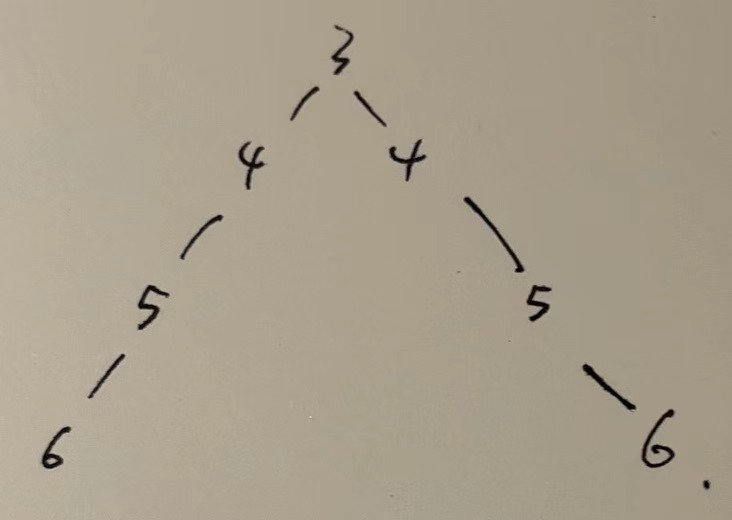 3
4 4
5 5
6 6.